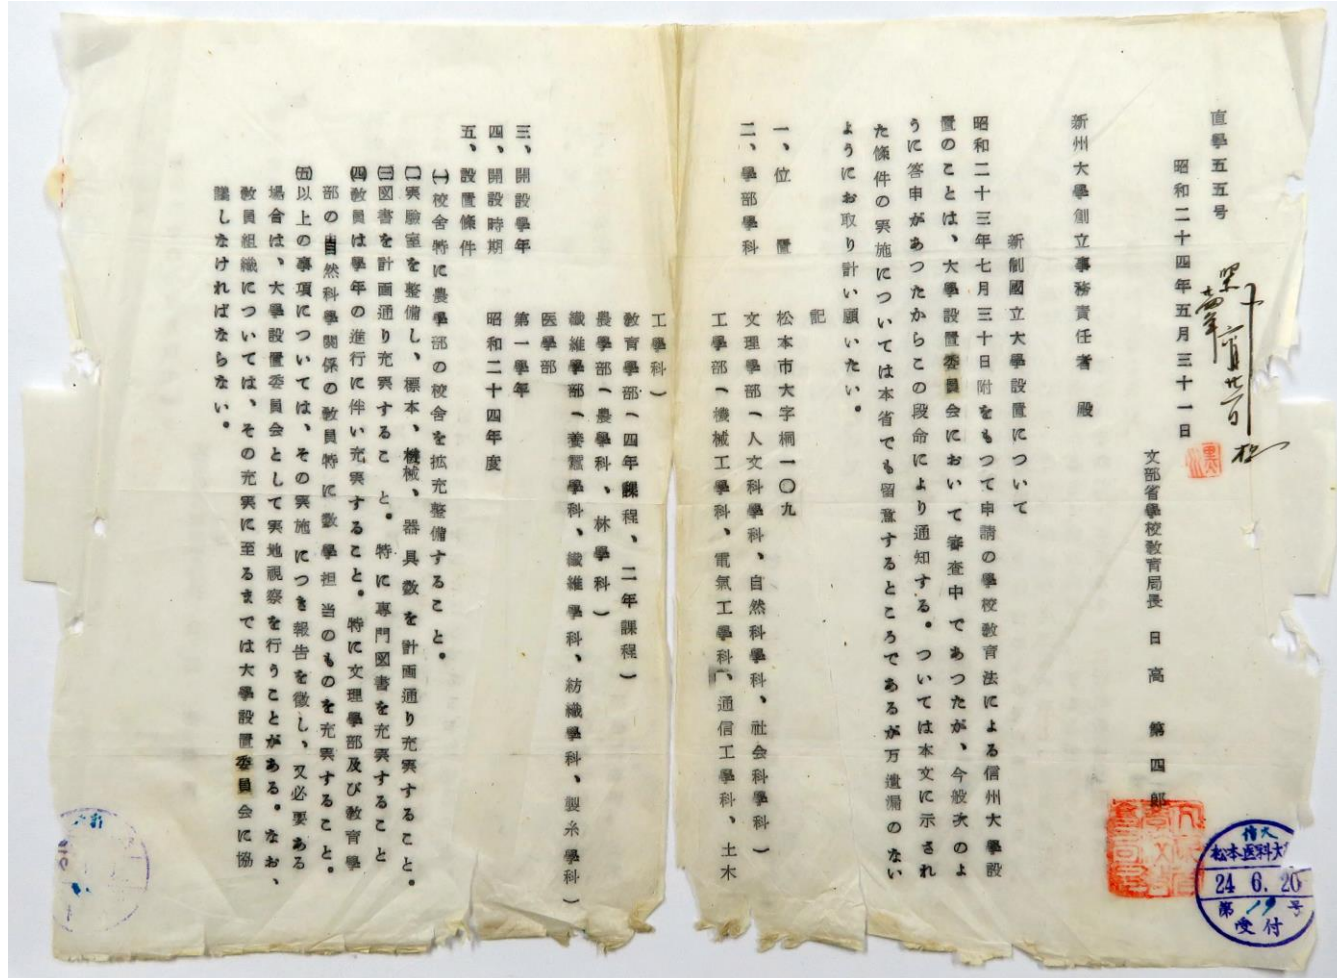 直學五五号
昭和二十四年五月三十一日
文部省學校教育局長　日高　第四郎
新州大學創立事務責任者　殿
新制國立大學設置について
昭和二十三年七月三十日附をもつて申請の學校教育法による信州大學設
置のことは、大學設置委員会において審査中であつたが、今般次のよ
うに答申があつたからこの段命により通知する。ついては本文に示され
た條件の実施については本省でも留意するところであるが万遺漏のない
ようにお取り計い願いたい。
記
一、位　置　松本市大字桐一〇九
二、學部學科　文理學部（人文科學科、自然科學科、社会科學科）
工學部（機械工學科、電氣工學科、通信工學科、土木
工學科）
教育學部（四年課程、二年課程）
農學部（農學科、林學科）
纎維學部（養蠶學科、纎維學科、紡織學科、製糸學科）
医學部
三、開設學年　第一學年
四、開設時期　昭和二十四年度
五、設置條件
㈠校舎特に農學部の校舎を拡充整備すること。
㈡実驗室を整備し、標本、機械、器具数を計画通り充実すること。
㈢図書を計画通り充実すること。特に専門図書を充実すること
㈣教員は學年の進行に伴い充実すること。特に文理學部及び教育學
部の自然科學関係の教員特に数學担当のものを充実すること。
㈤以上の事項については、その実施につき報告を徴し、又必要ある
場合は、大學設置委員会として実地視察を行うことがある。なお、
教員組織については、その充実に至るまでは大學設置委員会に協
議しなければならない。
信大
松本医科大
24 6. 20
第19号
受付